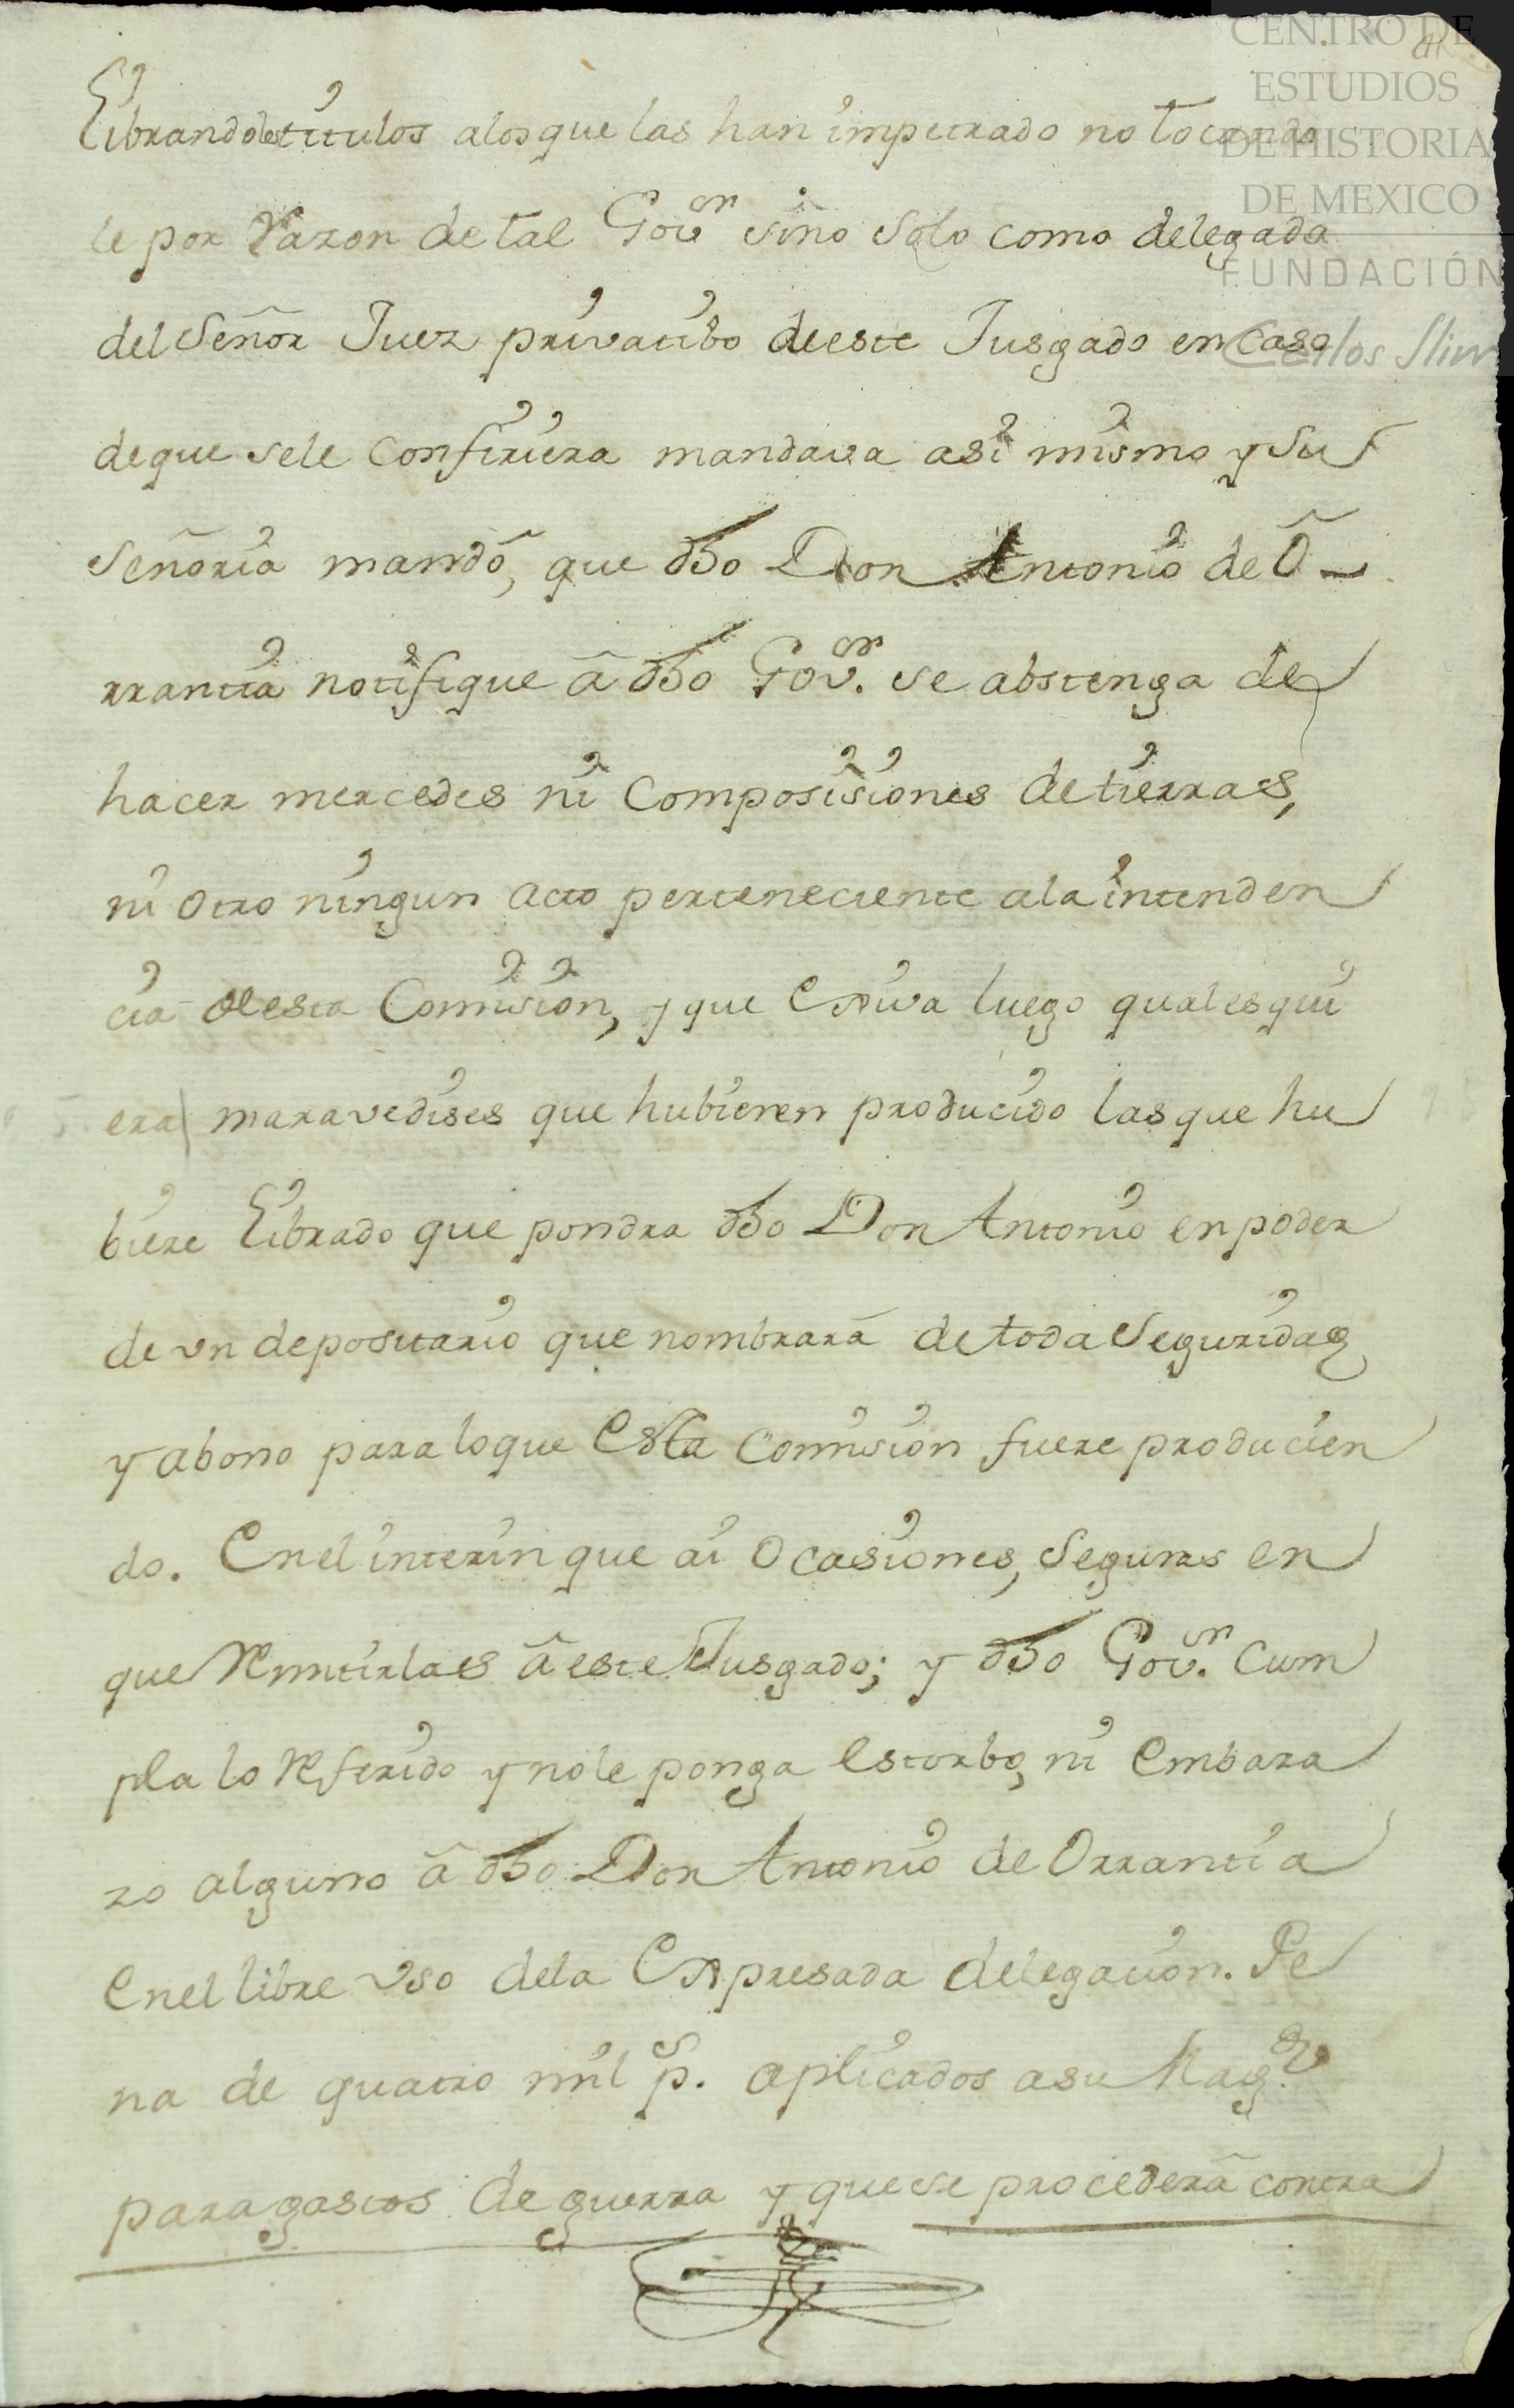 CENTRO DE
ESTUDIOS
DE HISTORIA
DE MEXICO
FUNDACIÓN
Carlos Slim
Librandoles titulos alos que las han impetrado no tocando
le por Razon de tal Govor sino solo como delegada
del Señor Juez privatibo de este Jusgado en caso
de que se le confiriera mandava asi mismo y su
Señoria mandó, que dho Don Antonio de O
rrantia notifique â dho Govor. se abstenga de
hacer mercedes ni Composisiones de tierras,
ni otro ningun acto perteneciente ala intenden
cia de esta Comision, y que Exsiva luego qualesqui
era maravedises que hubieren producido las que hu
biere Librado que pondra dho Don Antonio en poder
de vn depositario que nombrará de toda Seguridad
y abono para lo que Esta Comision fuere producien
do. En el interin que ai Ocasiones, Seguras en
que Remitirlas â este Jusgado; y dho Govor. Cum
pla lo Referido y no le ponga Estorbo, ni Embara
zo alguno â dho Don Antonio de Orrantia
En el libre vso dela Expresada delegacion. Pe
na de quatro mil ps. aplicados a su Magd
para gastos de guerra y que se procederá contra